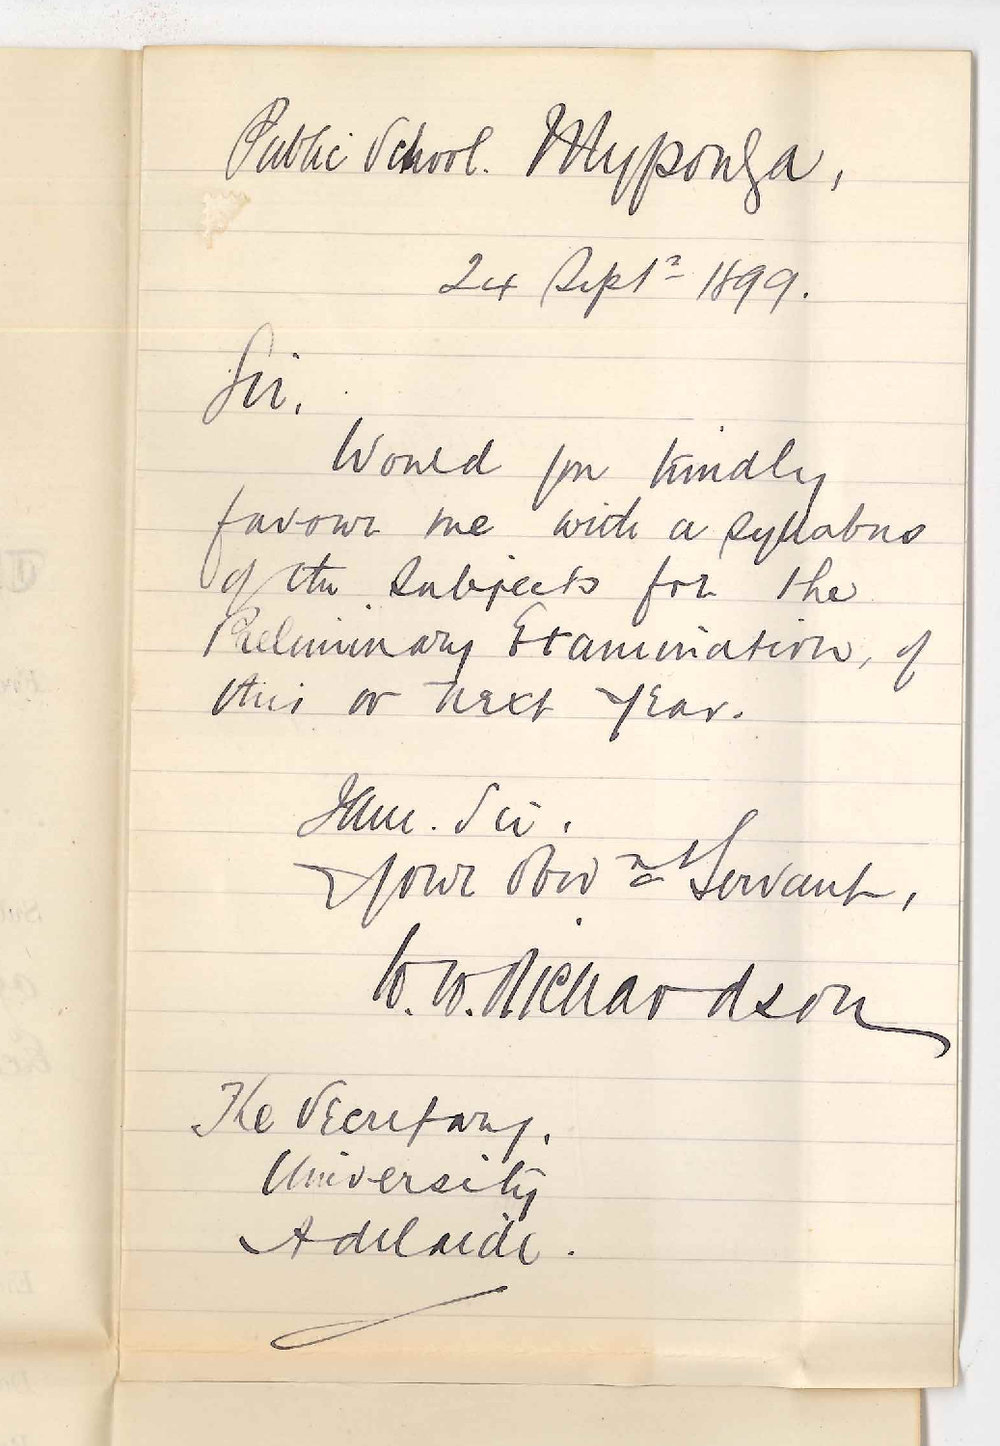 Public School. Myponga,
24 Septr 1899.
Sir,
Would you kindly
favour me with a syllabus
of the subjects for the
Preliminary Examination, of
this or next year.
I am. Sir.
Your Obednt Servant,
W. W. Richardson
The Secretary.
University
Adelaide.